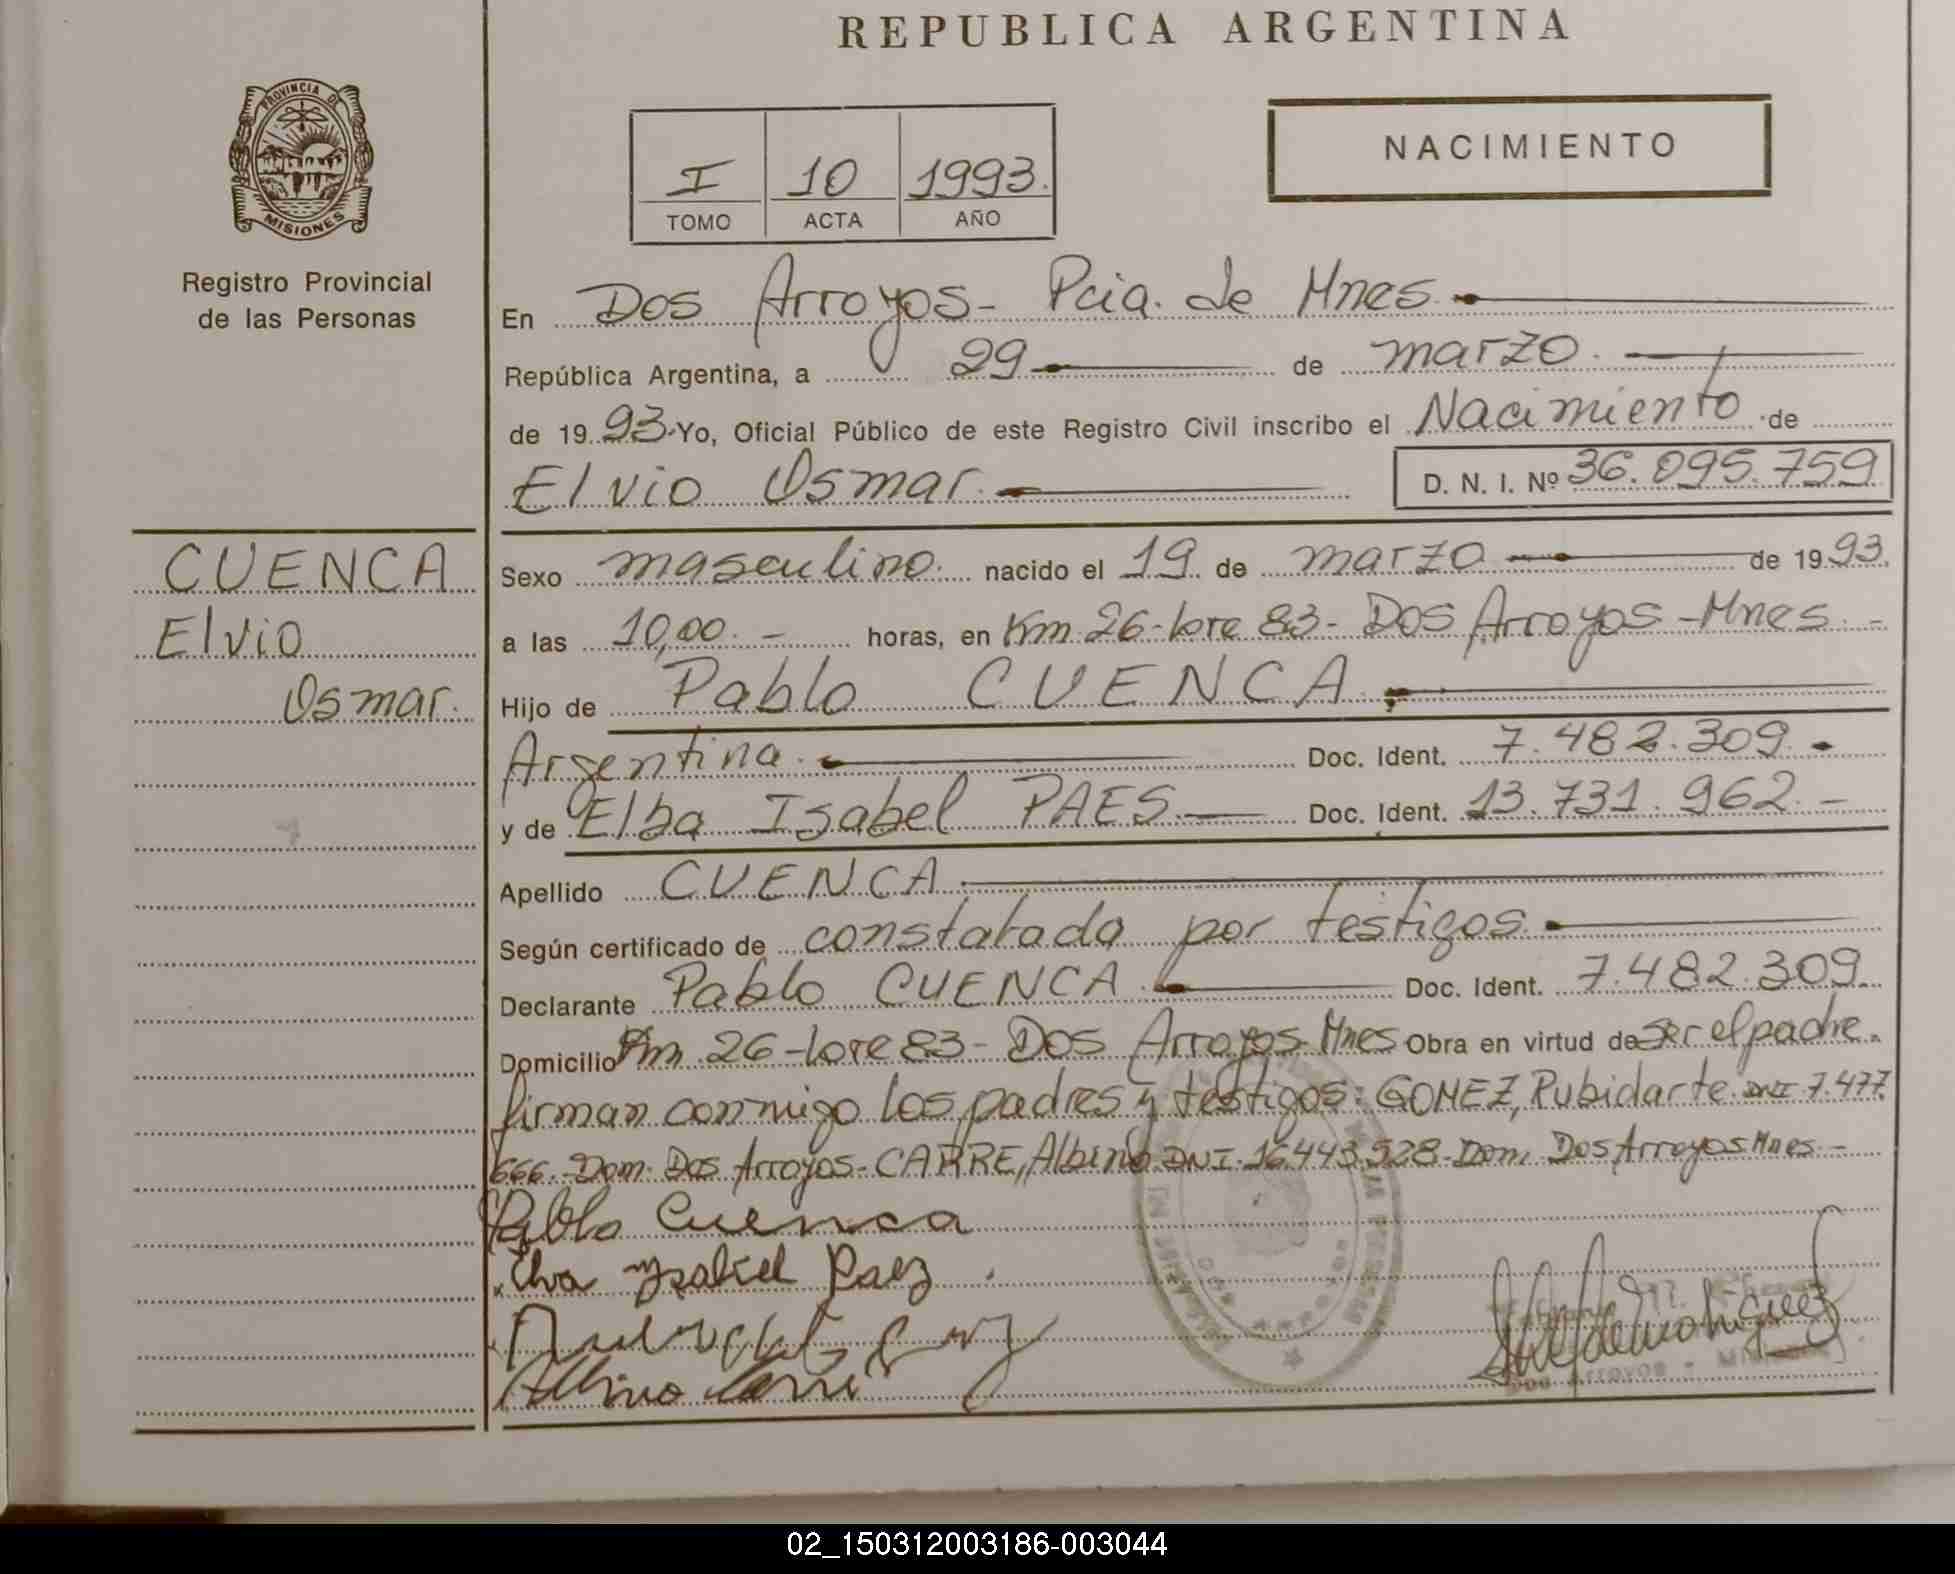 REPUBLICA ARGENTINA
PROVINCIA DE
MISIONES
Registro Provincial
de las Personas
I 10 1993.
TOMO ACTA AÑO
NACIMIENTO
En Dos Arroyos - Pcia. de Mnes.
República Argentina, a 29 de marzo.
de 1993. Yo, Oficial Público de este Registro Civil inscribo el Nacimiento de
Elvio Osmar. D. N. I. Nº 36.095.759
CUENCA
Elvio
Osmar.
Sexo masculino. nacido el 19 de marzo de 1993.
a las 10,00. - horas, en Km 26 - lote 83 - Dos Arroyos - Mnes. -
Hijo de Pablo CUENCA.
Argentina. Doc. Ident. 7.482.309. -
y de Elba Isabel PAES. Doc. Ident. 13.731.962. -
Apellido CUENCA
Según certificado de constatada por testigos.
Declarante Pablo CUENCA. Doc. Ident. 7.482.309.
Domicilio Km 26 - lote 83 - Dos Arroyos Mnes Obra en virtud de ser el padre.
firman conmigo los padres y testigos: GOMEZ, Rubidarte DNI 7.477.
666. Dom. Dos Arroyos - CARRE, Albino DNI. 16.443.528. Dom. Dos Arroyos Mnes. -
Pablo Cuenca
Elva Ysabel Paez
Albino Carre
Dos Arroyos - Misiones
02_150312003186-003044